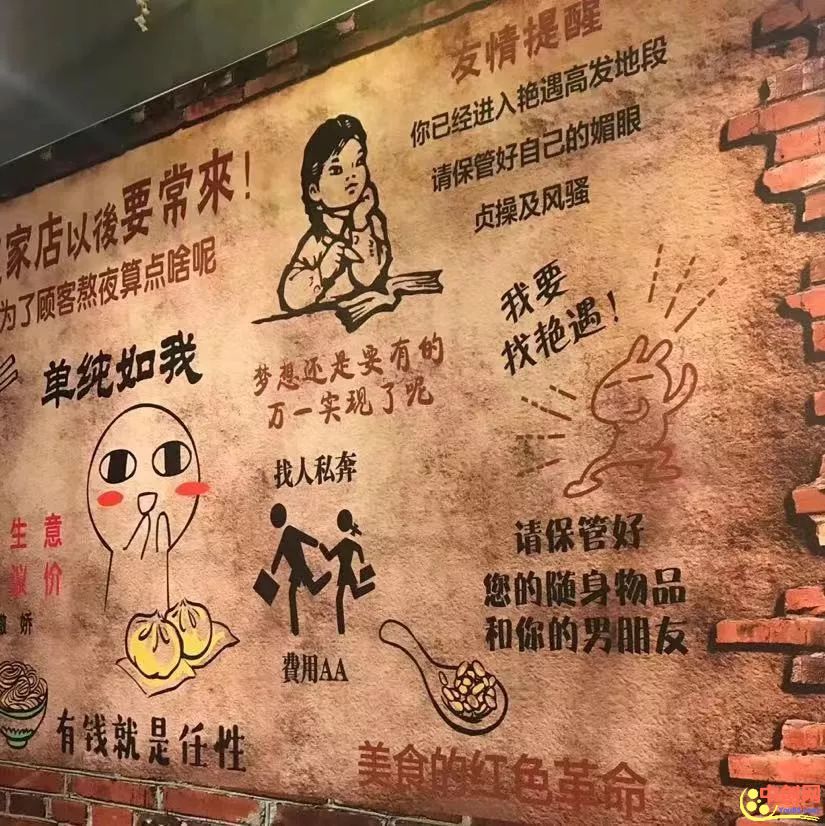 友情提醒
你已经进入艳遇高发地段
请保管好自己的媚眼
贞操及风骚
家店以後要常來！
为了顾客熬夜算点啥呢
单纯如我
梦想还是要有的
万一实现了呢
我要
找艳遇！
找人私奔
費用AA
生意
议价
娇
请保管好
您的随身物品
和你的男朋友
有钱就是任性
美食的红色革命